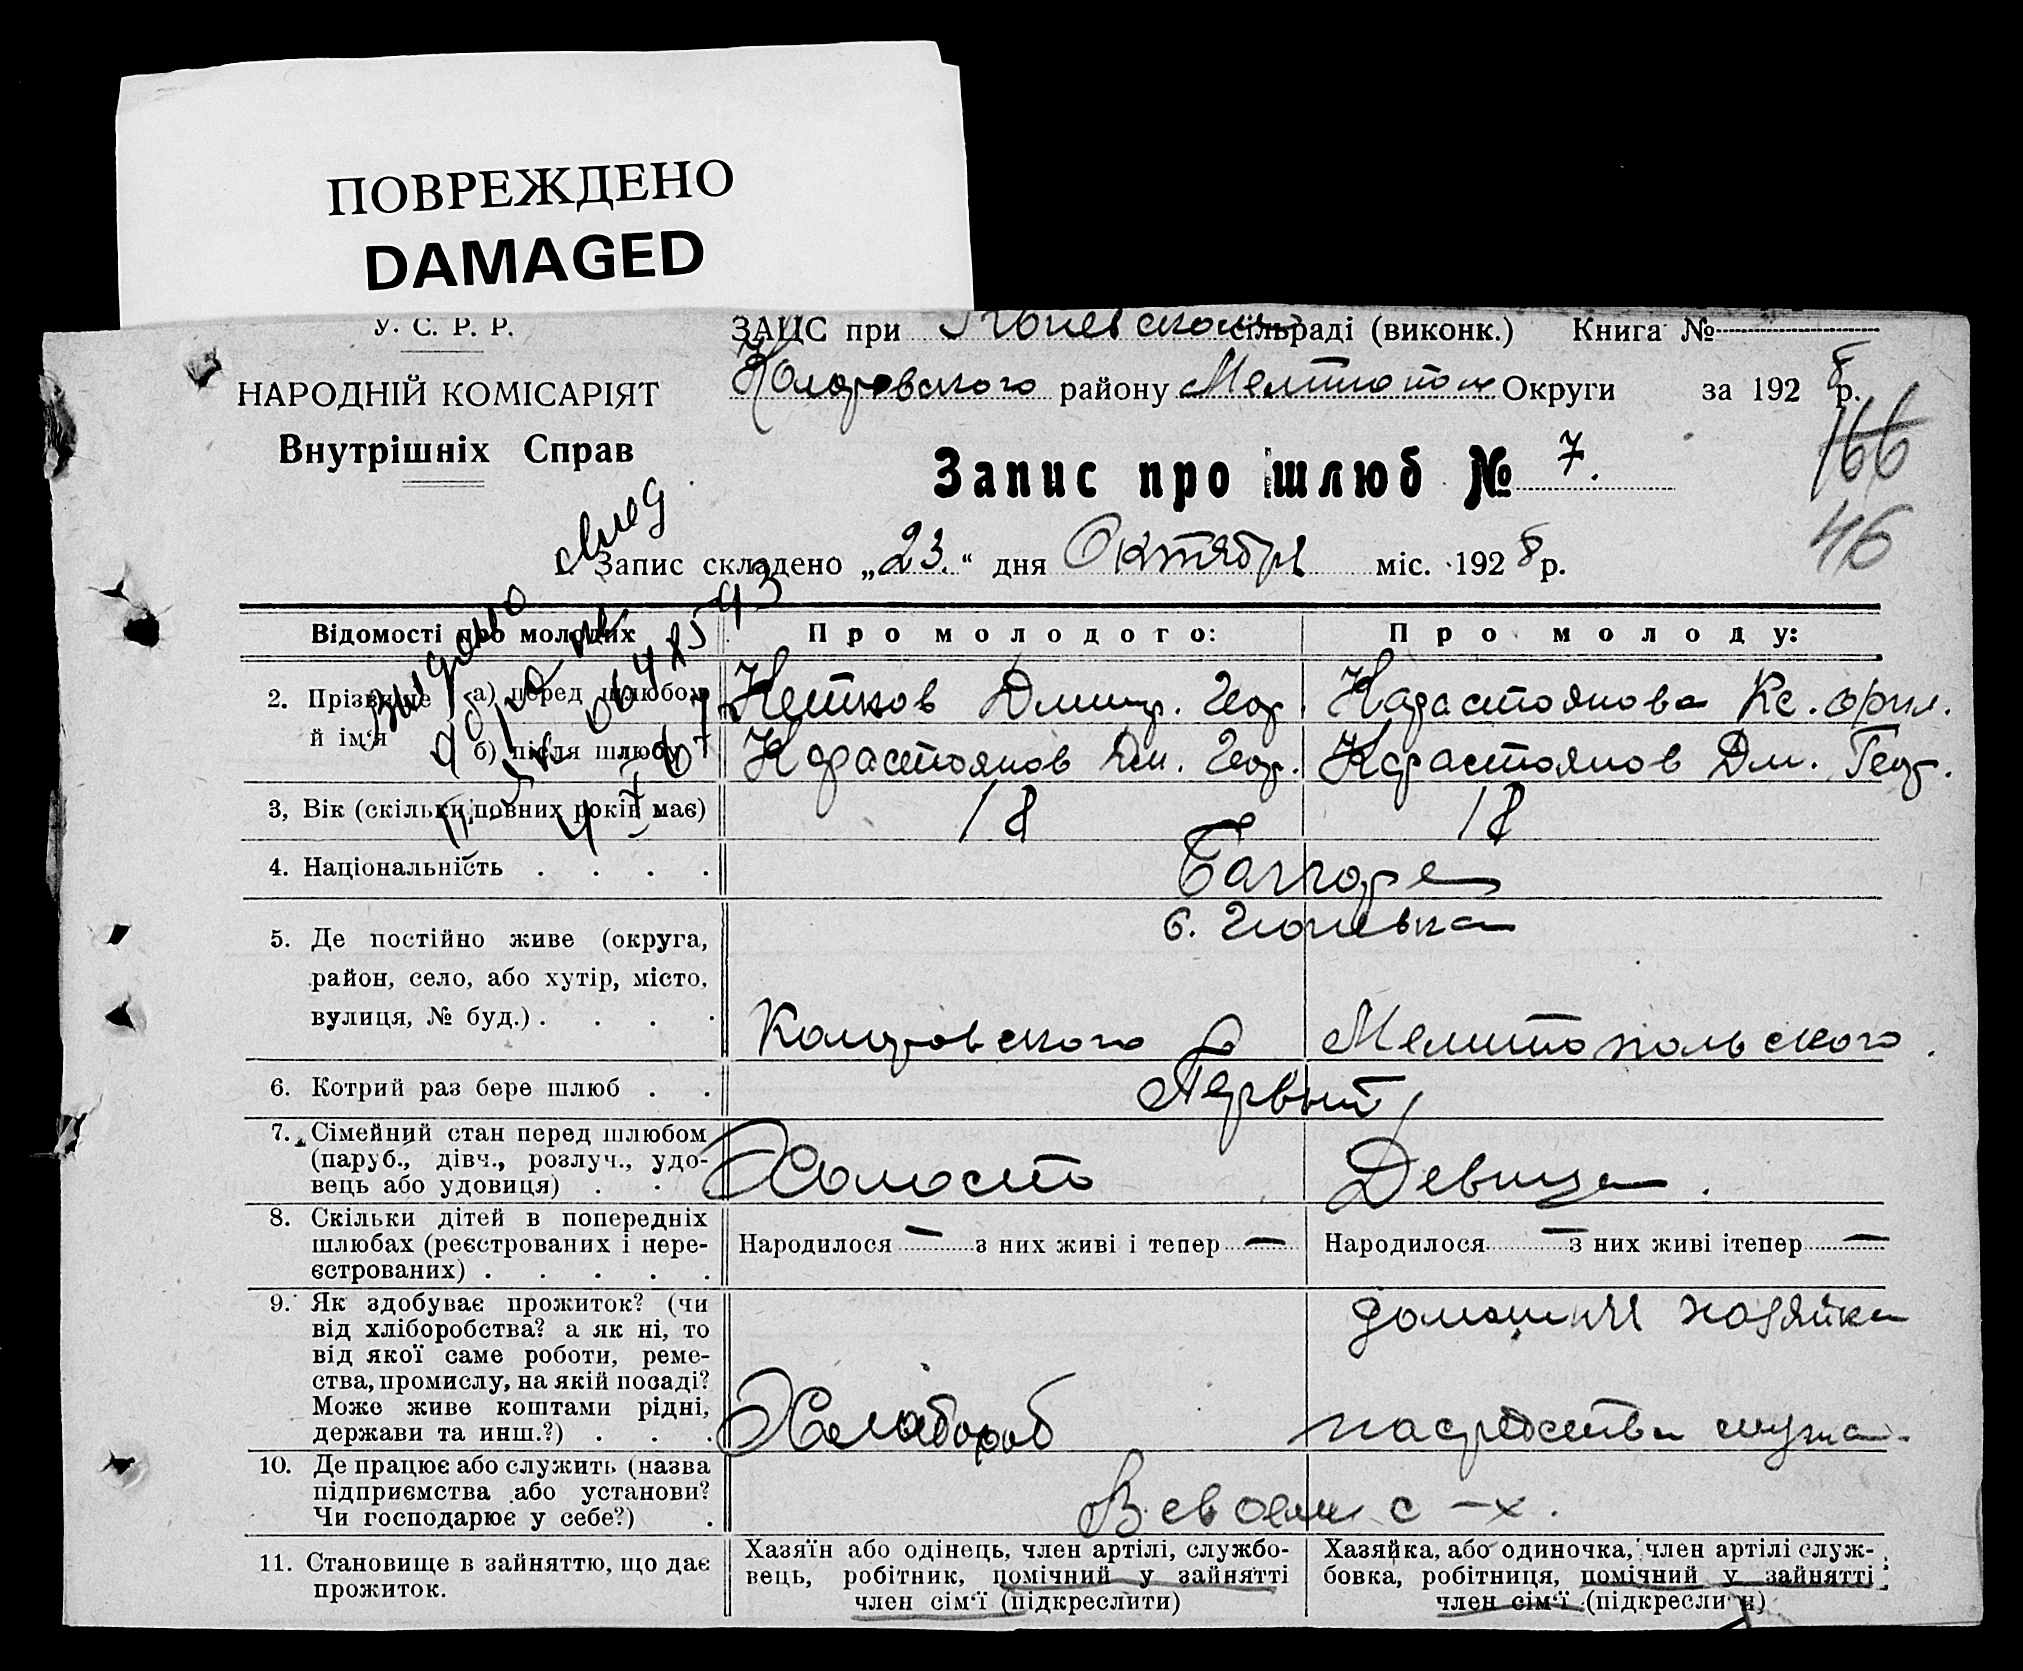 ПОВРЕЖДЕНО
DAMAGED
У. С. Р. Р.
НАРОДНІЙ КОМІСАРІЯТ
Внутрішніх Справ
ЗАЦС при сільраді (виконк.) Книга №
Коларовского району Мелитопол Округи за 1928 р.
166
46
Запис про шлюб № 7.
Запис складено „23.“ дня Октября міс. 1928 р.
Відомості про молодих
Про молодого:
Про молоду:
2. Прізвище й ім'я
а) перед шлюбом
Дмитр. Геор.
Карастоянова Кс.
б) після шлюбу
Карастоянов Дм. Геор.
Карастоянов Дм. Геор.
3, Вік (скільки повних років має)
18
18
4. Національність . . . .
Болгаре
5. Де постійно живе (округа,
район, село, або хутір, місто,
вулиця, № буд.) . . . .
с. Гюневка
Коларовского р Мелитопольского.
6. Котрий раз бере шлюб . .
Первый
7. Сімейний стан перед шлюбом
(паруб., дівч., розлуч., удо-
вець або удовиця) . . .
Холост
Девица.
8. Скільки дітей в попередніх
шлюбах (реєстрованих і нере-
єстрованих) . . . . .
Народилося — з них живі і тепер —
Народилося — з них живі ітепер —
9. Як здобуває прожиток? (чи
від хліборобства? а як ні, то
від якої саме роботи, реме-
ства, промислу, на якій посаді?
Може живе коштами рідні,
держави та инш.?) . . .
Хлебороб
домашн хозяйка
на средства мужа.
10. Де працює або служить (назва
підприємства або установи?
Чи господарює у себе?) .
В своем с-х.
11. Становище в зайняттю, що дає
прожиток.
Хазяїн або одінець, член артілі, службо-
вець, робітник, помічний у зайнятті
член сім'ї (підкреслити)
Хазяйка, або одиночка, член артілі служ-
бовка, робітниця, помічний у зайнятті
член сім'ї (підкреслити)